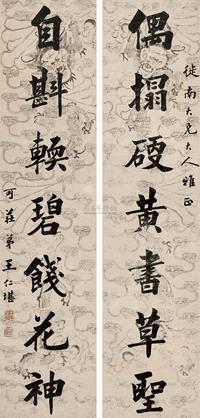 偶搨硬黄書草聖
從南大兄大人雅正
自斟輭碧餞花神
可莊弟王仁堪